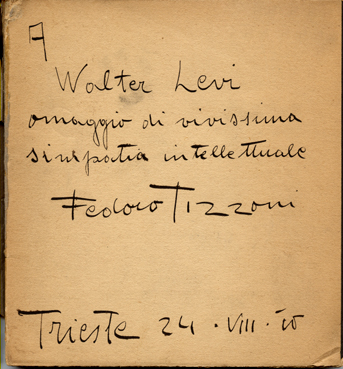 A
Walter Levi
omaggio di vivissima
simpatia intellettuale
Fedoro Tizzoni
Trieste 24 · VIII ·